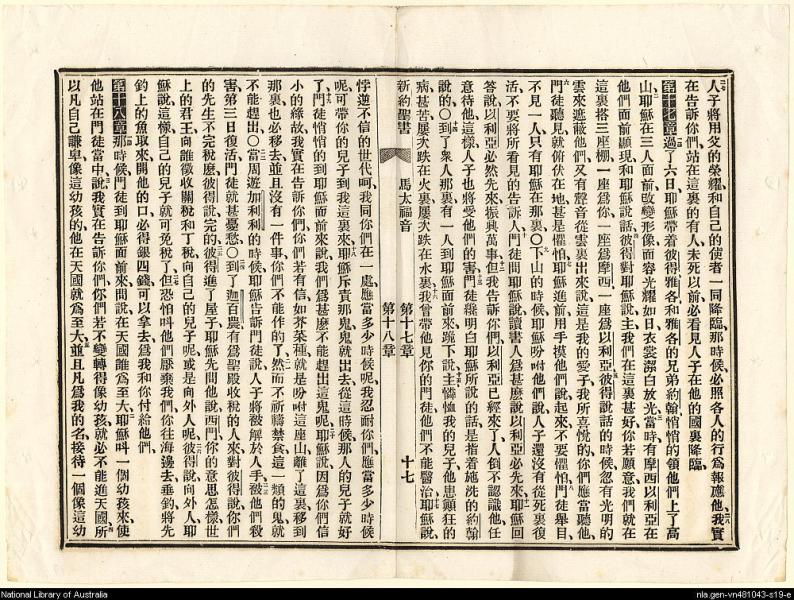 人子將用父的榮耀和自己的使者一同降臨、那時候必照各人的行爲報應他、我實
在告訴你們、站在這裏的有人未死以前必看見人子在他的國裏降臨、
第十七章過了六日、耶穌帶着彼得雅各和雅各的兄弟約翰、悄悄的領他們上了高
山、耶穌在三人面前改變形像、面容光耀如日、衣裳潔白放光、當時有摩西以利亞在
他們面前顯現、和耶穌說話、彼得對耶穌說、主、我們在這裏甚好、你若願意、我們就在
這裏搭三座棚、一座爲你、一座爲摩西、一座爲以利亞、彼得說話的時候、忽有光明的
雲來遮蔽他們、又有聲音從雲裏出來說、這是我的愛子、我所喜悅的、你們應當聽他、
門徒聽見、就俯伏在地、甚是懼怕、耶穌進前、用手摸他們說、起來、不要懼怕、門徒舉目、
不見一人、只有耶穌在那裏○下山的時候、耶穌吩咐他們說、人子還沒有從死裏復
活、不要將所看見的告訴人、門徒問耶穌說、讀書人爲甚麽說以利亞必先來、耶穌回
答說、以利亞必然先來、振興萬事、但我告訴你們、以利亞已經來了、人倒不認識他、任
意待他、這樣人子也將要受他們的害、門徒纔明白耶穌所說的話、是指着施洗的約翰
說的、○到了衆人那裏、有一人到耶穌面前來、跪下說、主憐恤我的兒子、他患癲狂的
病甚苦、屢次跌在火裏、屢次跌在水裏、我嘗帶他見你的門徒、他們不能醫治、耶穌說、
新約聖書 馬太福音 第十七章 第十八章 十七
悖逆不信的世代呵、我同你們在一處、應當多少時候呢、我忍耐你們、應當多少時候
呢、可帶你的兒子到我這裏來、耶穌斥責那鬼、鬼就出去、從這時候、那人的兒子就好
了、門徒悄悄的到耶穌面前來說、我們爲甚麽不能趕出這鬼呢、耶穌說、因爲你們信
小的緣故、我實在告訴你們、你們若有信如芥菜種、就是吩咐這座山離了這裏移到
那裏、也必移去、並且沒有一件事、你們不能作的了、然而不祈禱禁食、這一類的鬼、就
不能趕出、○當周遊加利利的時候、耶穌告訴門徒說、人子將被解於人手、被他們殺
害、第三日復活、門徒就甚憂愁、○到了迦百農、有爲聖殿收稅的人來對彼得說、你們
的先生不完稅麽、彼得說、完的、彼得進了屋子、耶穌先問他說、西門、你的意思怎樣、世
上的君王、向誰徵收關稅和丁稅、向自己的兒子呢、或是向外人呢、彼得說、向外人、耶
穌說、這樣、自己的兒子就可免稅了、但恐怕叫他們厭棄我們、你往海邊去垂釣、將先
釣上的魚取來、開他的口、必得銀四錢、可以拿去爲我和你付給他們、
第十八章那時候、門徒到耶穌面前來問說、在天國誰爲至大、耶穌叫一個幼孩來、使
他站在門徒當中、說、我實在告訴你們、你們若不變轉得像幼孩、就必不能進天國、所
以凡自己謙卑像這幼孩的、他在天國就爲至大、並且凡爲我的名接待一個像這幼
National Library of Australia
nla.gen-vn481043-s19-e